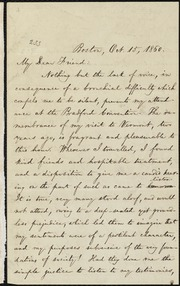 Boston, Oct. 15, 1860.
My Dear Friend:
Nothing but the lack of voice, in
consequence of a bronchial difficulty which
compels me to be silent, prevents my attend-
ance at the Bradford Convention. The re-
membrance of my visit to Vermont, two
years ago, is fragrant and pleasurable to
this hour. Wherever I travelled, I found
kind friends and hospitable treatment,
and a disposition to give me a candid hear-
ing on the part of such as came to
listen
It is true, very many stood aloof, and would
not attend, owing to a deep-rooted yet ground-
less prejudice, which led them to imagine that
my sentiments were of a pestilent character,
and my purposes subversive of the very foun-
dations of society! Had they done me the
simple justice to listen to my testimonies,